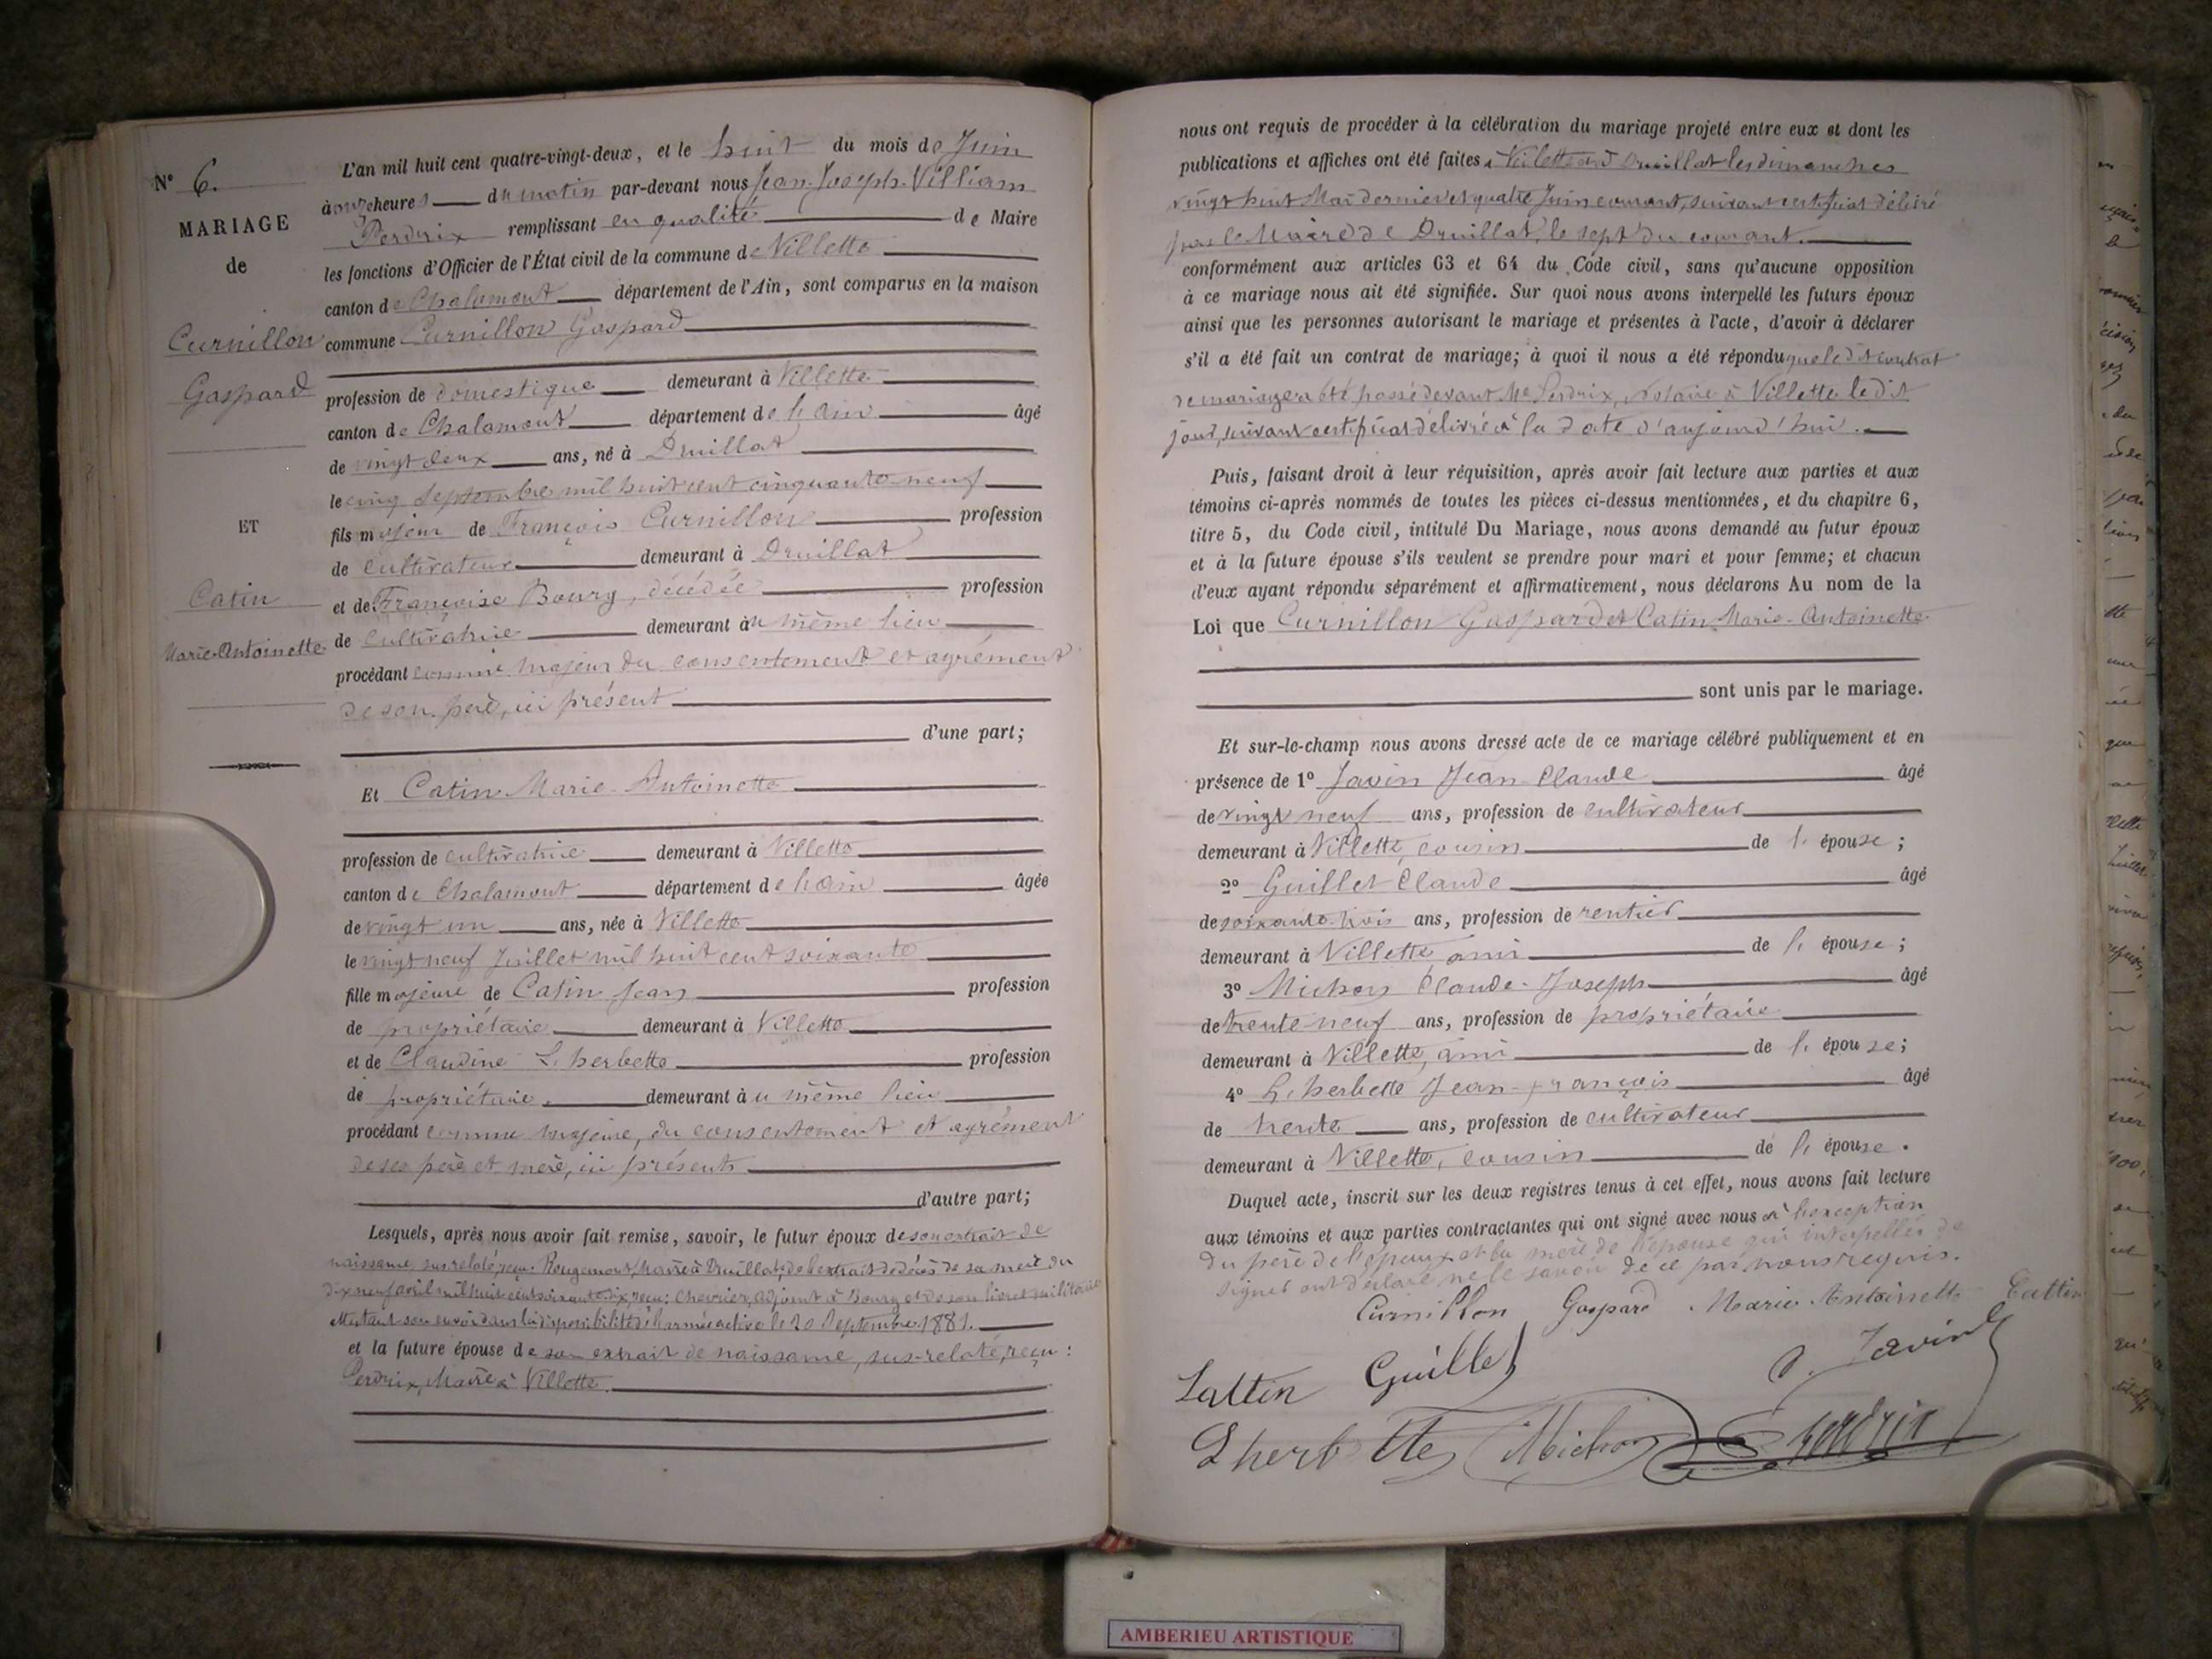 N° 6.
MARIAGE
de
Curnillon
Gaspard
ET
Catin
Marie-Antoinette
L'an mil huit cent quatre-vingt-deux, et le huit du mois de Juin
à onze heures du matin par-devant nous Jean-Joseph-Villiam
Perdrix remplissant en qualité de Maire
les fonctions d'Officier de l'État civil de la commune de Villette
canton de Chalamont département de l'Ain, sont comparus en la maison
commune Curnillon Gaspard
profession de domestique demeurant à Villette
canton de Chalamont département de l'Ain âgé
de vingt deux ans, né à Druillat
le cinq Septembre mil huit cent cinquante-neuf
fils majeur de François Curnillon profession
de cultivateur demeurant à Druillat
et de Françoise Bourg, décédée profession
de cultivatrice demeurant au même lieu
procédant comme majeur du consentement et agrément
de son père, ici présent
d'une part;
Et Catin Marie-Antoinette
profession de cultivatrice demeurant à Villette
canton de Chalamont département de l'Ain âgée
de vingt un ans, née à Villette
le vingt neuf Juillet mil huit cent soixante
fille majeure de Catin Jean profession
de propriétaire demeurant à Villette
et de Claudine L'herbette profession
de propriétaire demeurant au même lieu
procédant comme majeure, du consentement et agrément
de ses père et mère, ici présents
d'autre part;
Lesquels, après nous avoir fait remise, savoir, le futur époux de son extrait de
naissance, sus relaté, reçu: Rougemont, Maire à Druillat, de l'extrait de décès de sa mère du
dix neuf avril mil huit cent soixante-dix, reçu: Chevrier, adjoint à Bourg et de son livret militaire
attestant son envoi dans la disponibilité de l'armée active le 20 Septembre 1881.
et la future épouse de son extrait de naissance, sus-relaté, reçu:
Perdrix, Maire à Villette.
nous ont requis de procéder à la célébration du mariage projeté entre eux et dont les
publications et affiches ont été faites à Villette et à Druillat les dimanches
vingt huit Mai dernier et quatre Juin courant, suivant certificat délivré
par le Maire de Druillat, le sept du courant.
conformément aux articles 63 et 64 du Code civil, sans qu'aucune opposition
à ce mariage nous ait été signifiée. Sur quoi nous avons interpellé les futurs époux
ainsi que les personnes autorisant le mariage et présentes à l'acte, d'avoir à déclarer
s'il a été fait un contrat de mariage; à quoi il nous a été répondu que le dit contrat
de mariage a été passé devant Me Perdrix, Notaire à Villette le dit
jour, suivant certificat délivré à la date d'aujourd'hui.
Puis, faisant droit à leur réquisition, après avoir fait lecture aux parties et aux
témoins ci-après nommés de toutes les pièces ci-dessus mentionnées, et du chapitre 6,
titre 5, du Code civil, intitulé Du Mariage, nous avons demandé au futur époux
et à la future épouse s'ils veulent se prendre pour mari et pour femme; et chacun
d'eux ayant répondu séparément et affirmativement, nous déclarons Au nom de la
Loi que Curnillon Gaspard et Catin Marie-Antoinette
sont unis par le mariage.
Et sur-le-champ nous avons dressé acte de ce mariage célébré publiquement et en
présence de 1° Javin Jean-Claude âgé
de vingt neuf ans, profession de cultivateur
demeurant à Villette, cousin de l'épouse;
2° Guillet Claude âgé
de soixante-trois ans, profession de rentier
demeurant à Villette, ami de l'épouse;
3° Michon Claude-Joseph âgé
de trente neuf ans, profession de propriétaire
demeurant à Villette, ami de l'épouse;
4° L'herbette Jean-François âgé
de trente ans, profession de cultivateur
demeurant à Villette, cousin de l'épouse.
Duquel acte, inscrit sur les deux registres tenus à cet effet, nous avons fait lecture
aux témoins et aux parties contractantes qui ont signé avec nous à l'exception
du père de l'époux et la mère de l'épouse qui interpellés de
signer ont déclaré ne le savoir de ce par nous requis.
Curnillon Gaspard Marie Antoinette Cattin
Cattin Guillet J. Javin
Lherbette Michon Perdrix
AMBERIEU ARTISTIQUE